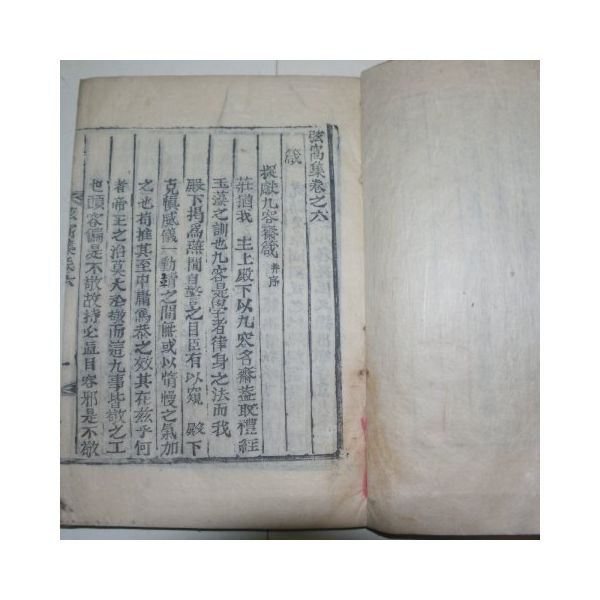 弦窩集卷之六
箴
擬獻九容齋箴 幷序
莊猶我 主上殿下以九容名齋盖取禮經
玉藻之訓也九容是學者律身之法而我
殿下揭爲燕閒自警之目臣有以窺 殿下
克愼威儀一動靜之間無或以惰慢之氣加
之也苟推其至中庸篤恭之效其在玆乎何
者帝王之治莫大於敬而這九事皆敬之工
也頭容偏是不敬故持必直目容邪是不敬